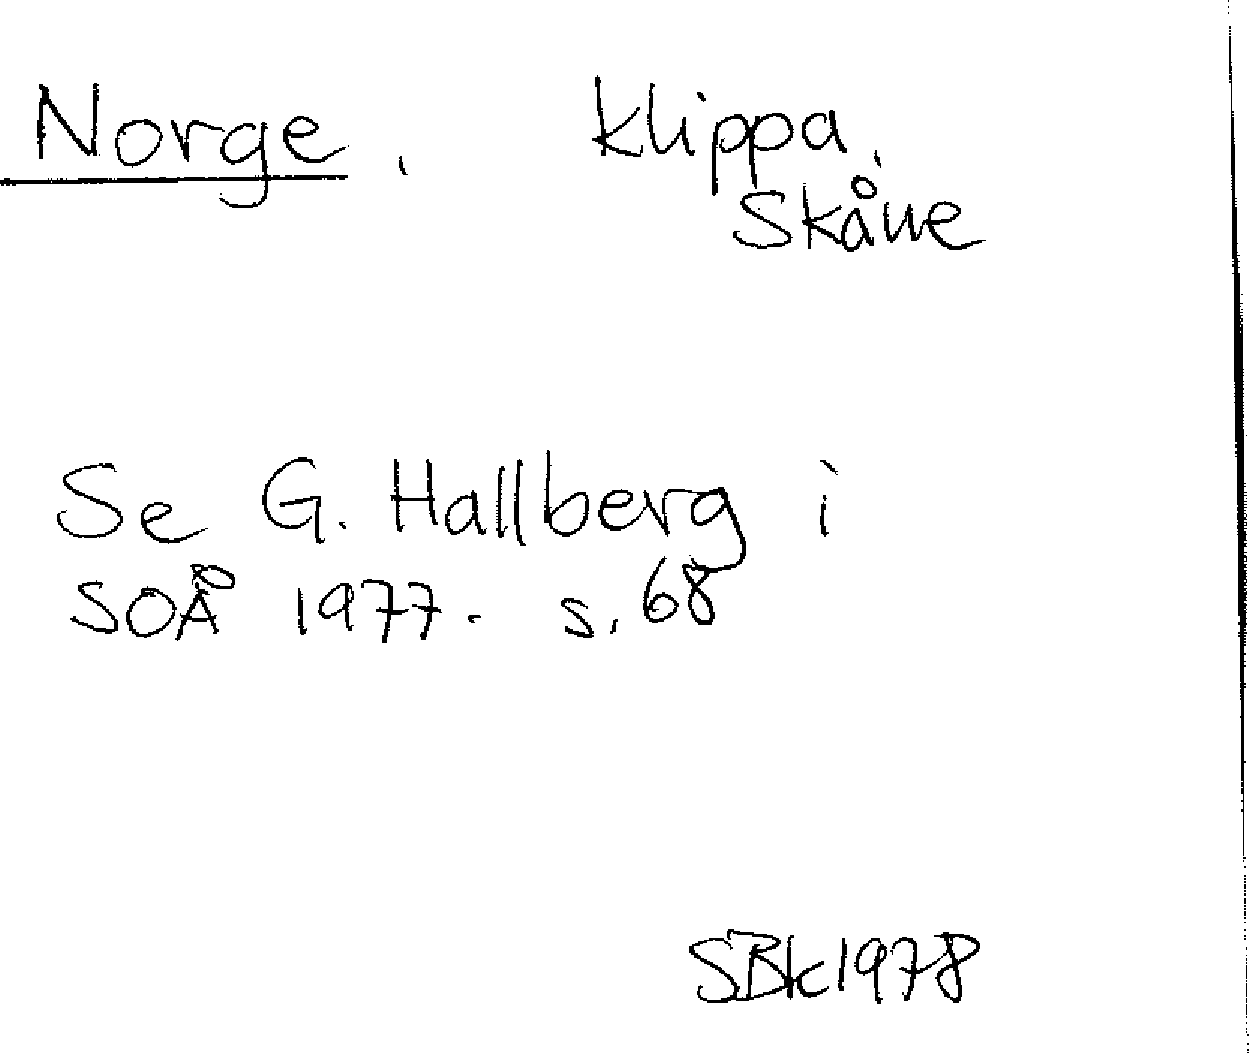 Norge. Klippa.
Skåne
Se G. Hallberg i
SOÅ 1977. s. 68
SBk 1978